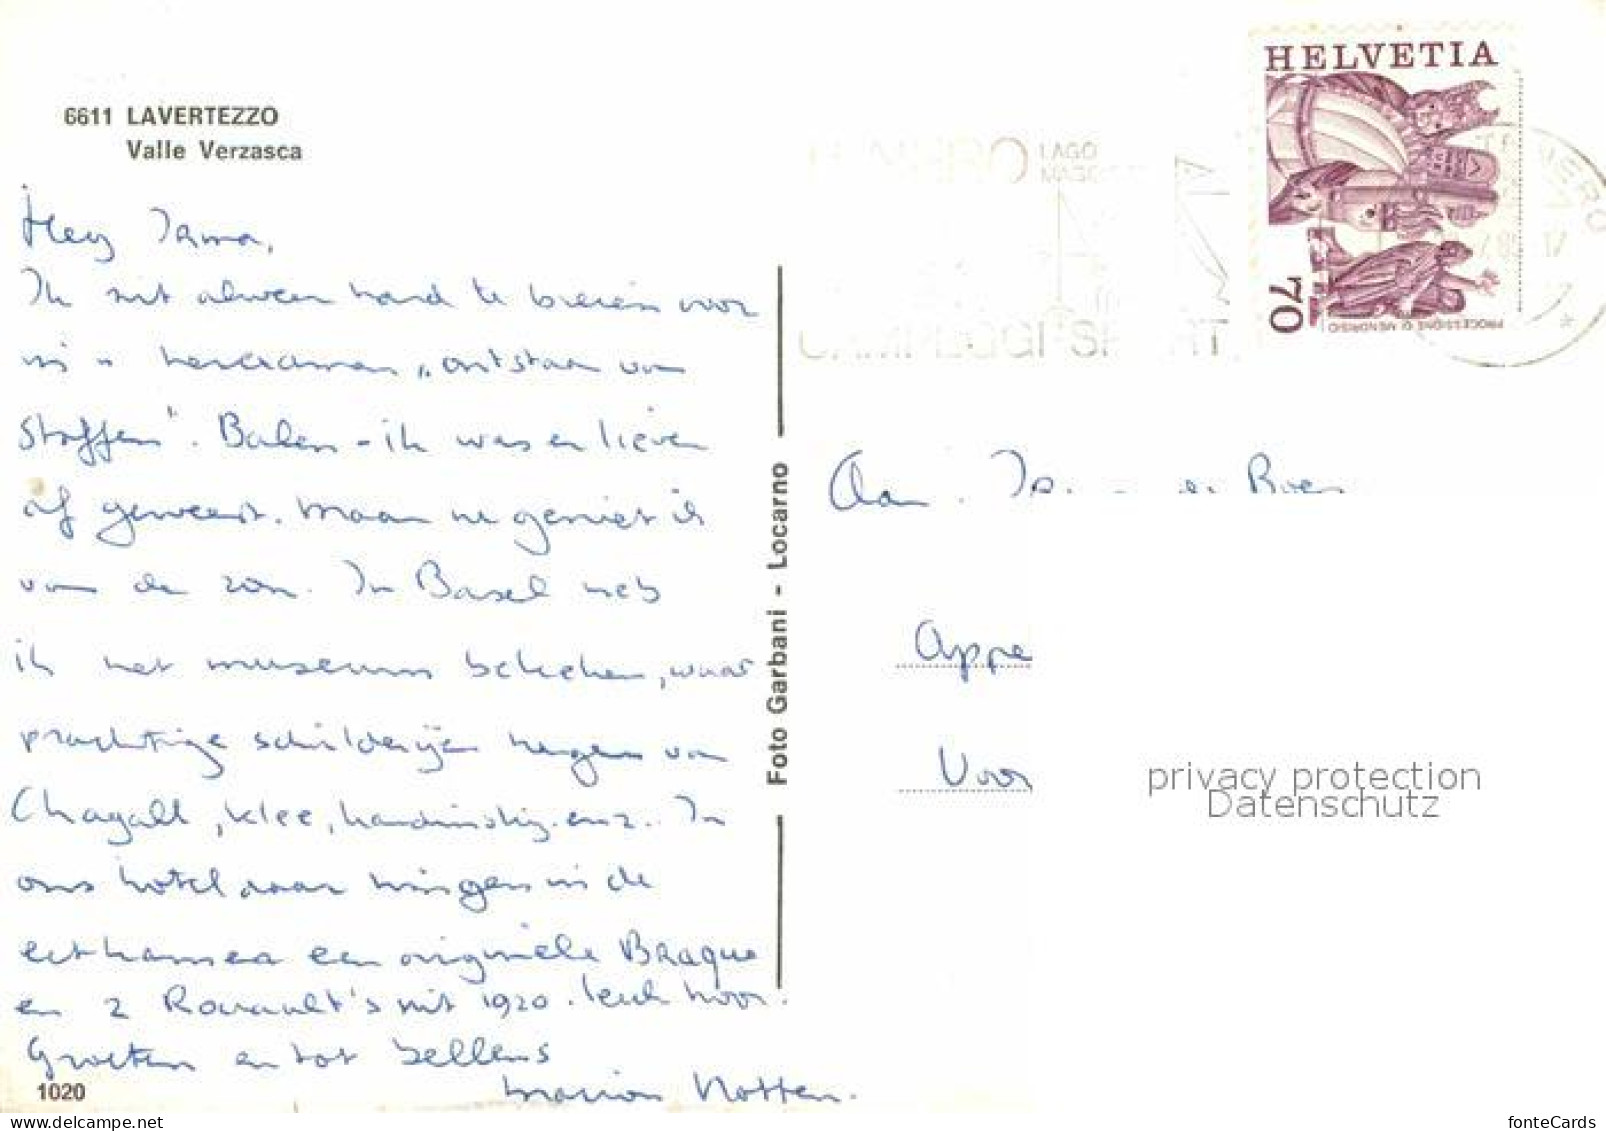 HELVETIA
6611 LAVERTEZZO
Valle Verzasca
LAGO
70
PROCESSIONE DI MENDRISIO
Hey
Ik zit alweer hard te voor
"ontstaan van
stoffen". Balen - ik was er liever
af geweest. Maar nu geniet ik
van de zon. In Basel heb
ik het museum bekeken, waar
prachtige schilderijen hingen van
Chagall, Klee, Kandinskij. enz.. In
ons hotel daar hingen in de
eetkamer een originele Braque
en 2 Rouault's uit 1920. leuk hoor.
Groeten en tot bellens
Marion Notten.
Foto Garbani - Locarno
Aan
Appe
Voor
privacy protection
Datenschutz
1020
fonteCards